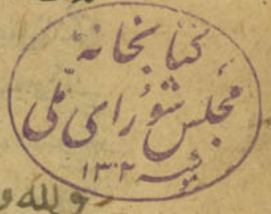 کتابخانه
مجلس شورای ملی
۱۳۰۲
ولله